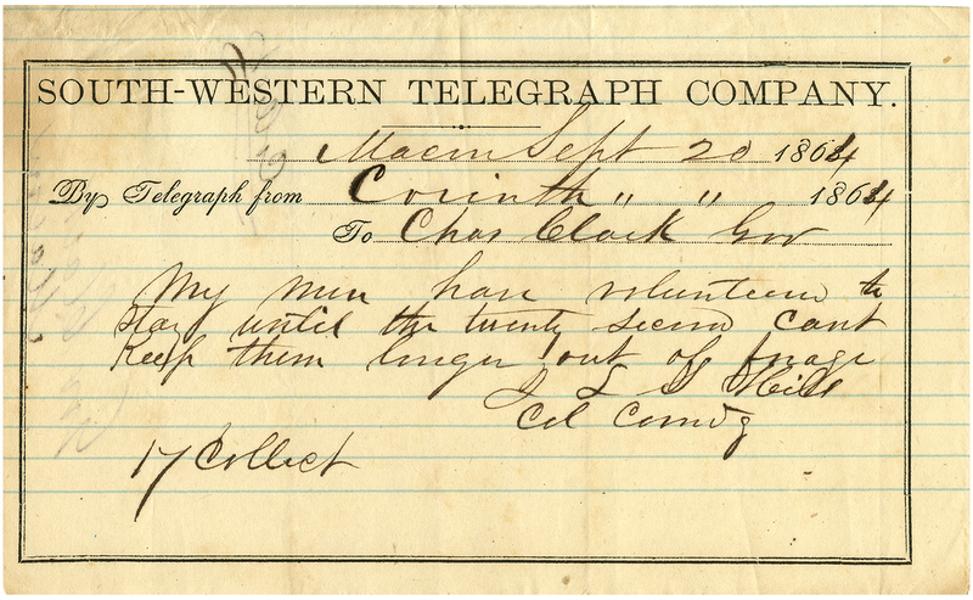 SOUTH-WESTERN TELEGRAPH COMPANY.
Macon Sept 20 1864
By Telegraph from Corinth " " 1864
To Chas Clark Gov
My men have volunteered to
stay until the twenty second cant
keep them longer out of forage
J L S Hill
Col Comdg
17 Collect